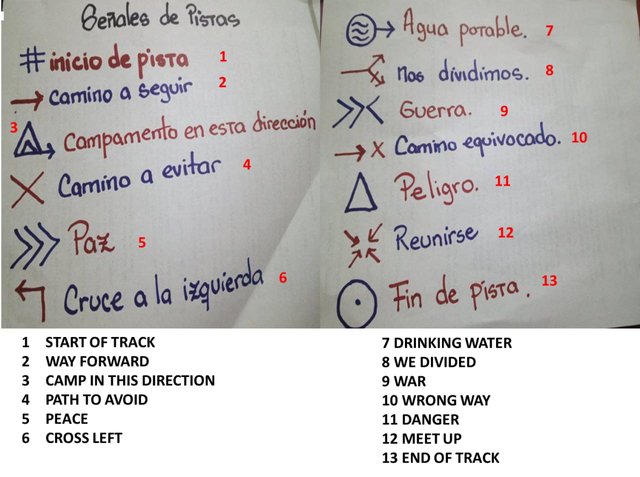 Señales de Pistas
inicio de pista 1
camino a seguir 2
3 Campamento en esta dirección
Camino a evitar 4
Paz 5
Cruce a la izquierda 6
Agua potable. 7
nos dividimos. 8
Guerra. 9
Camino equivocado. 10
Peligro. 11
Reunirse 12
Fin de pista. 13
1 START OF TRACK
2 WAY FORWARD
3 CAMP IN THIS DIRECTION
4 PATH TO AVOID
5 PEACE
6 CROSS LEFT
7 DRINKING WATER
8 WE DIVIDED
9 WAR
10 WRONG WAY
11 DANGER
12 MEET UP
13 END OF TRACK